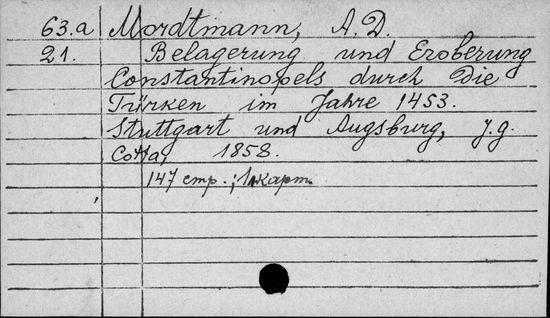 63.a Mordtmann, A. D.
21. Belagerung und Eroberung
Constantinopels durch die
Türken im Jahre 1453.
Stuttgart und Augsburg, J. g.
Cotta, 1858.
147 стр.; 1 карт.